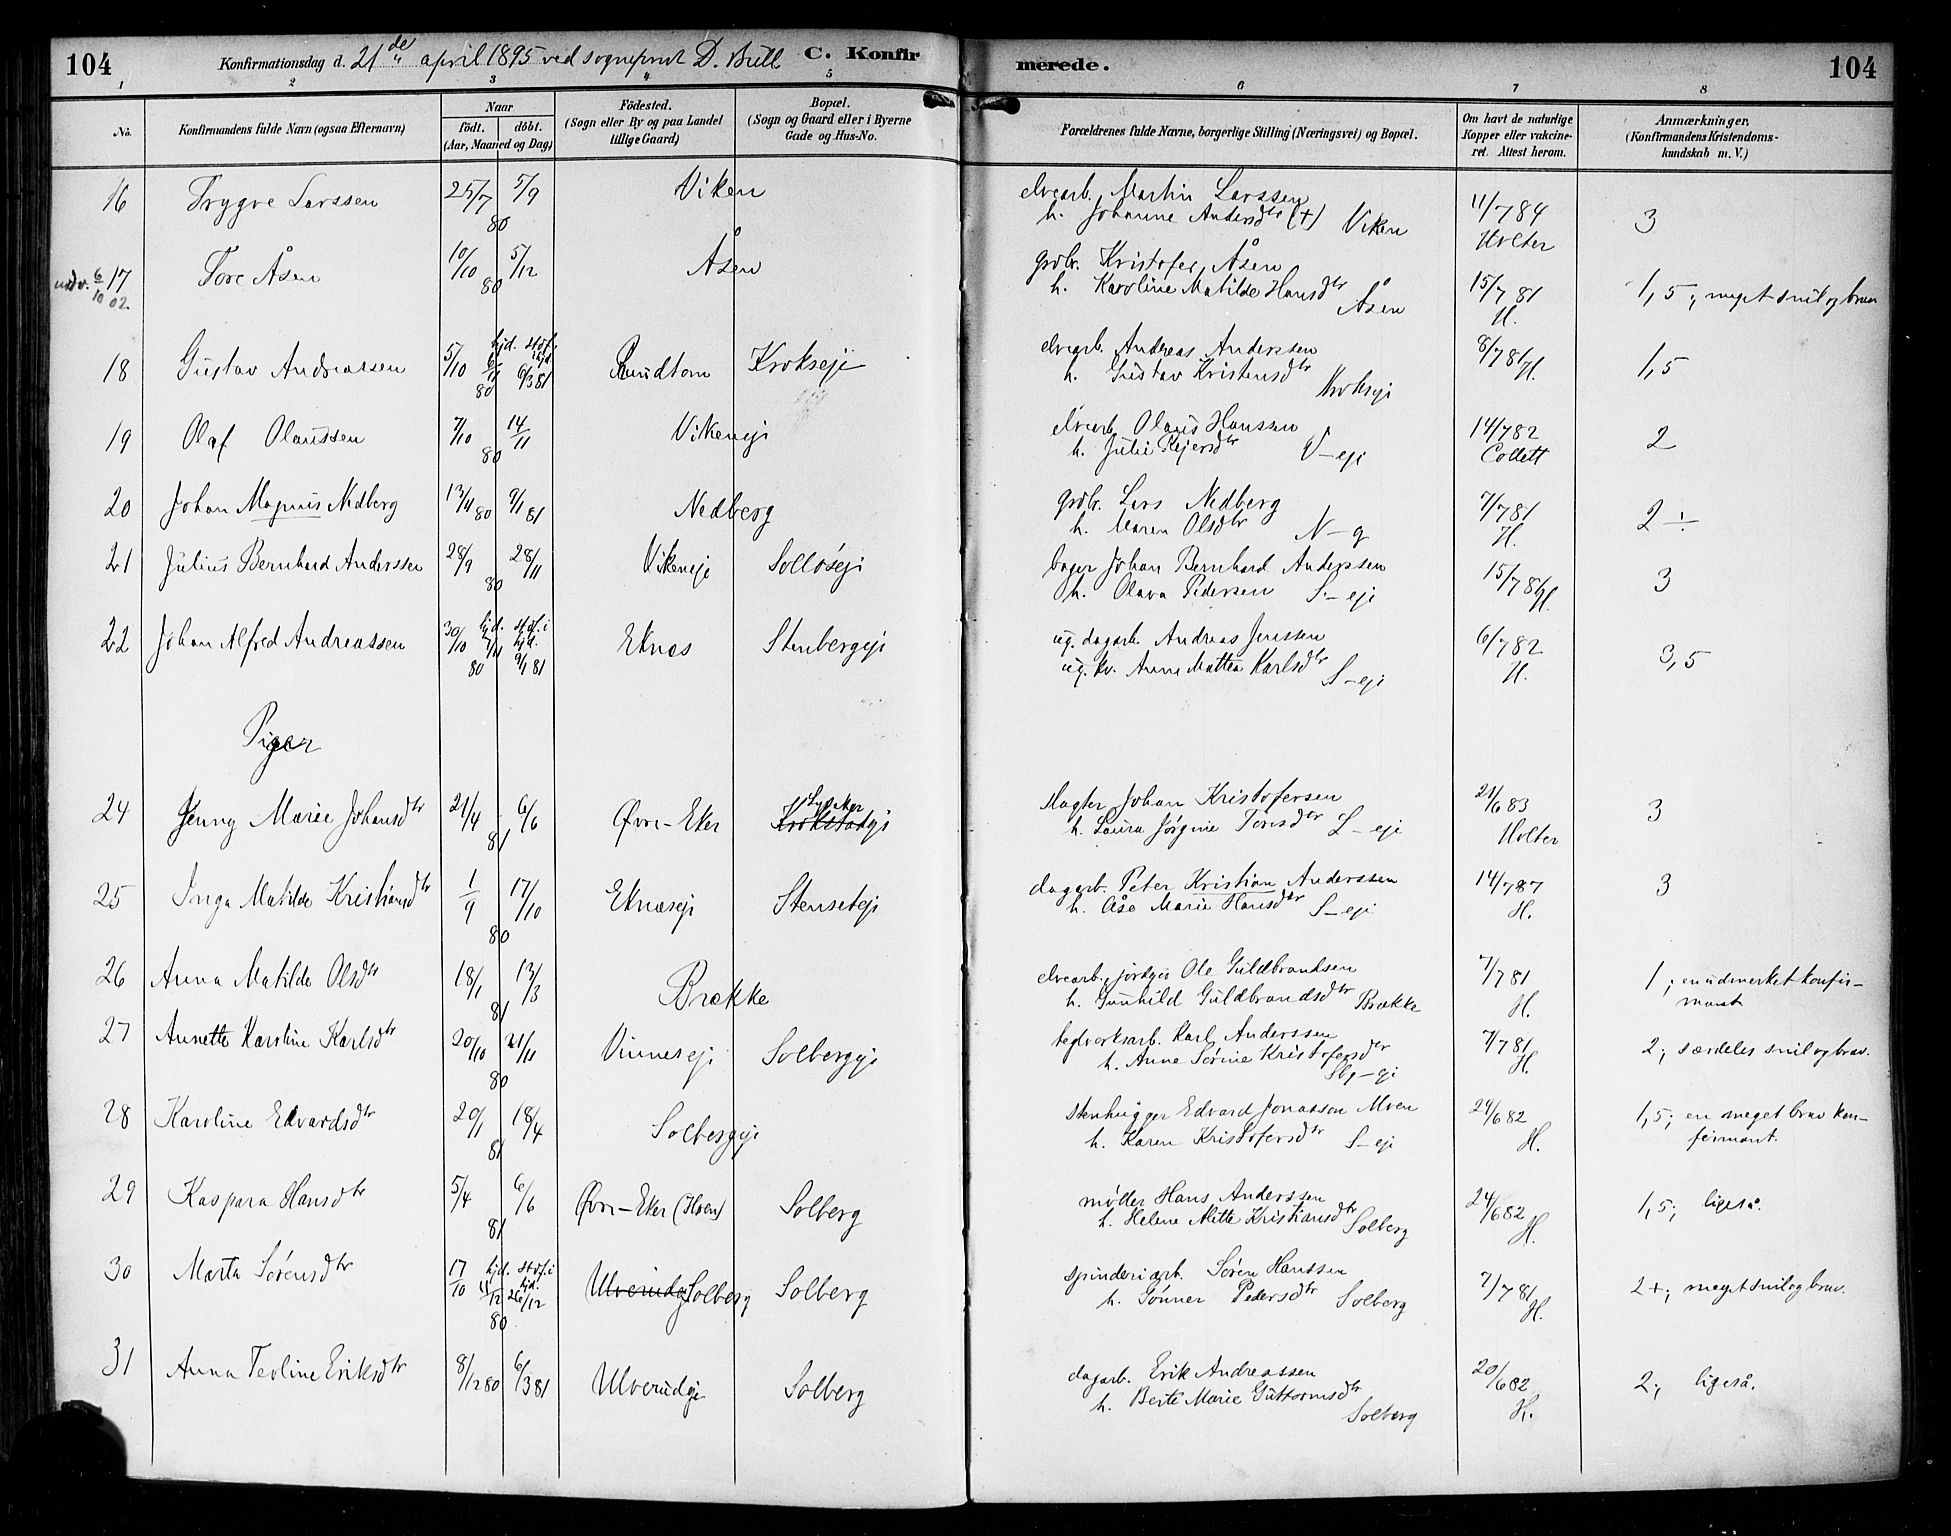 104 Konfirmationsdag d. 21de april 1895 ved sogneprest D. Bull C. Konfir merede. 104
1 2 3 4 5 6 7 8
No. Konfirmandens fulde Navn (ogsaa Efternavn) Naar födt. döbt. (Aar, Maaned og Dag) Födested. (Sogn eller By og paa Landet tillige Gaard) Bopæl. (Sogn og Gaard eller i Byerne Gade og Hus-No. Forældrenes fulde Navne, borgerlige Stilling (Næringsvei) og Bopæl. Om havt de naturlige Kopper eller vakcineret. Attest herom. Anmærkninger. (Konfirmandens Kristendomskundskab m. V.)
16 Trygve Larssen 25/7 80 5/9 Viken elvearb. Martin Larssen
h. Johanne Andersdtr (+) Viken 11/7 84 Holter 3
udv. 6/10 02. 17 Tore Åsen 10/10 80 5/12 Åsen grdbr. Kristofer Åsen
h. Karoline Matilde Hansdtr Åsen 15/7 81 H. 1,5; meget snil og brav
18 Gustav Andreassen 5/10 80 hjd. 6/11 stdf. i kjd. 6/3 81 Rundtom Krokseje elvearb. Andreas Anderssen
h. Gustav Kristensdtr Krokseje 8/7 81 H. 1,5
19 Olaf Olaussen 7/10 80 14/11 Vikeneje elvearb. Olaus Hanssen
h. Julie Rejersdtr V–eje 14/7 82 Collett 2
20 Johan Magnus Nedberg 13/4 80 9/1 81 Nedberg grdbr. Lars Nedberg
h. Maren Olsdtr N–g 7/7 81 H. 2 ÷
21 Julius Bernhard Anderssen 28/9 80 28/11 Vikeneje Solløseje bager Johan Bernhard Anderssen
h. Olava Pedersen S.–eje 15/7 81 H. 3
22 Johan Alfred Andreassen 30/10 80 hjd. 7/11 stdf. i kjd. 9/1 81 Eknes Stenbergeje ug. dagarb. Andreas Jenssen
ug. kv. Anne Mattea Karlsdtr S–eje 6/7 82 H. 3,5
Piger
24 Jenny Marie Johansdtr 21/4 81 6/6 Øvre-Eker Krokstadeje slagter Johan Kristofersen
h. Laura Jørgine Tonsdtr L–eje 21/6 83 Holter 3
25 Inga Matilde Kristiansdtr 1/9 80 17/10 Eknæseje Stenseteje dagarb. Peter Kristian Anderssen
h. Åse Marie Hansdtr S–eje 14/7 87 H. 3
26 Anna Matilde Olsdtr 18/1 81 13/3 Brække elvearb., jordejer Ole Guldbrandsen
h. Gunhild Guldbrandsdtr Brække 7/7 81 H. 1; en udmerket konfirmant
27 Annette Karoline Karlsdtr 20/10 80 21/11 Vinneseje Solbergeje teglverksarb. Karl Anderssen
h. Anne Sørine Kristofersdtr Sbg–eje 7/7 81 H. 2; særdeles snil og brav.
28 Karoline Edvardsdtr 20/1 81 18/4 Solbergeje stenhugger Edvard Jonassen Moen
h. Karen Kristofersdtr S–eje 24/6 82 H. 1,5; en meget brav konfirmant.
29 Kaspara Hansdtr 5/4 81 6/6 Øvre-Eker (Hoen) Solberg møller Hans Anderssen
h. Helene Mitte Kristiansdtr Solberg 24/6 82 H. 1,5; ligeså.
30 Marta Sørensdtr 17/10 80 hjd. 11/12 stdf. i kjd. 26/12 Ulverudeje Solberg Solberg spinderiarb. Søren Hanssen
h. Gunner Pedersdtr Solberg 7/7 81 H. 2+; meget snil og brav.
31 Anna Teoline Eriksdtr 8/12 80 6/3 81 Ulverudeje Solberg dagarb. Erik Andreassen
h. Berte Marie Guttormsdtr Solberg 20/6 82 H. 2; ligeså.